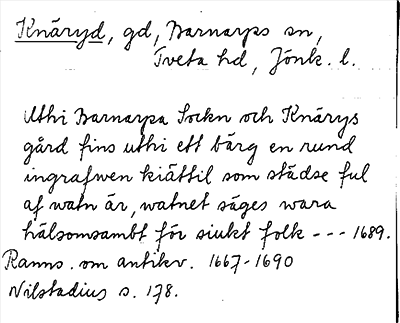 Knäryd, gd, Barnarps sn,
Tveta hd, Jönk. l.
Uthi Barnarpa Sockn och Knärys
gård fins uthi ett bärg en rund
ingrafwen kiättil som städse ful
af watn är, watnet säges wara
hälsomsambt för siukt folk --- 1689.
Ranns. om antikv. 1667-1690
Nilstadius s. 178.